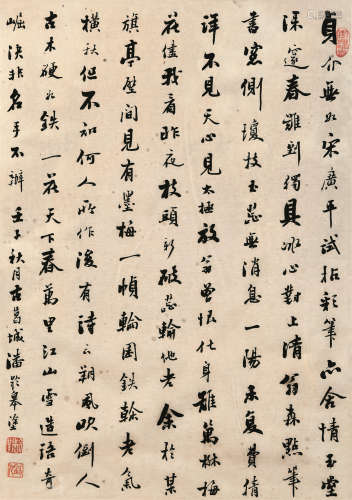 貞介無如宋廣平試拈彩筆亦含情玉堂
深邃春難到獨具冰心對上清翁森點筆
書窓側瓊枝玉蕊無消息一陽來復費情
詳不見天心見太極放翁曾恨化身難萬樹梅
花儘我看昨夜枝頭新破蕊輸他老余於某
旗亭壁間見有墨梅一幀輪囷鉄榦老氣
橫秋但不知何人所作後有詩云朔風吹倒人
古木硬如鉄一花天下春萬里江山雪造語奇
崛決非名手不辦壬子秋月古葛城潘齡皋塗